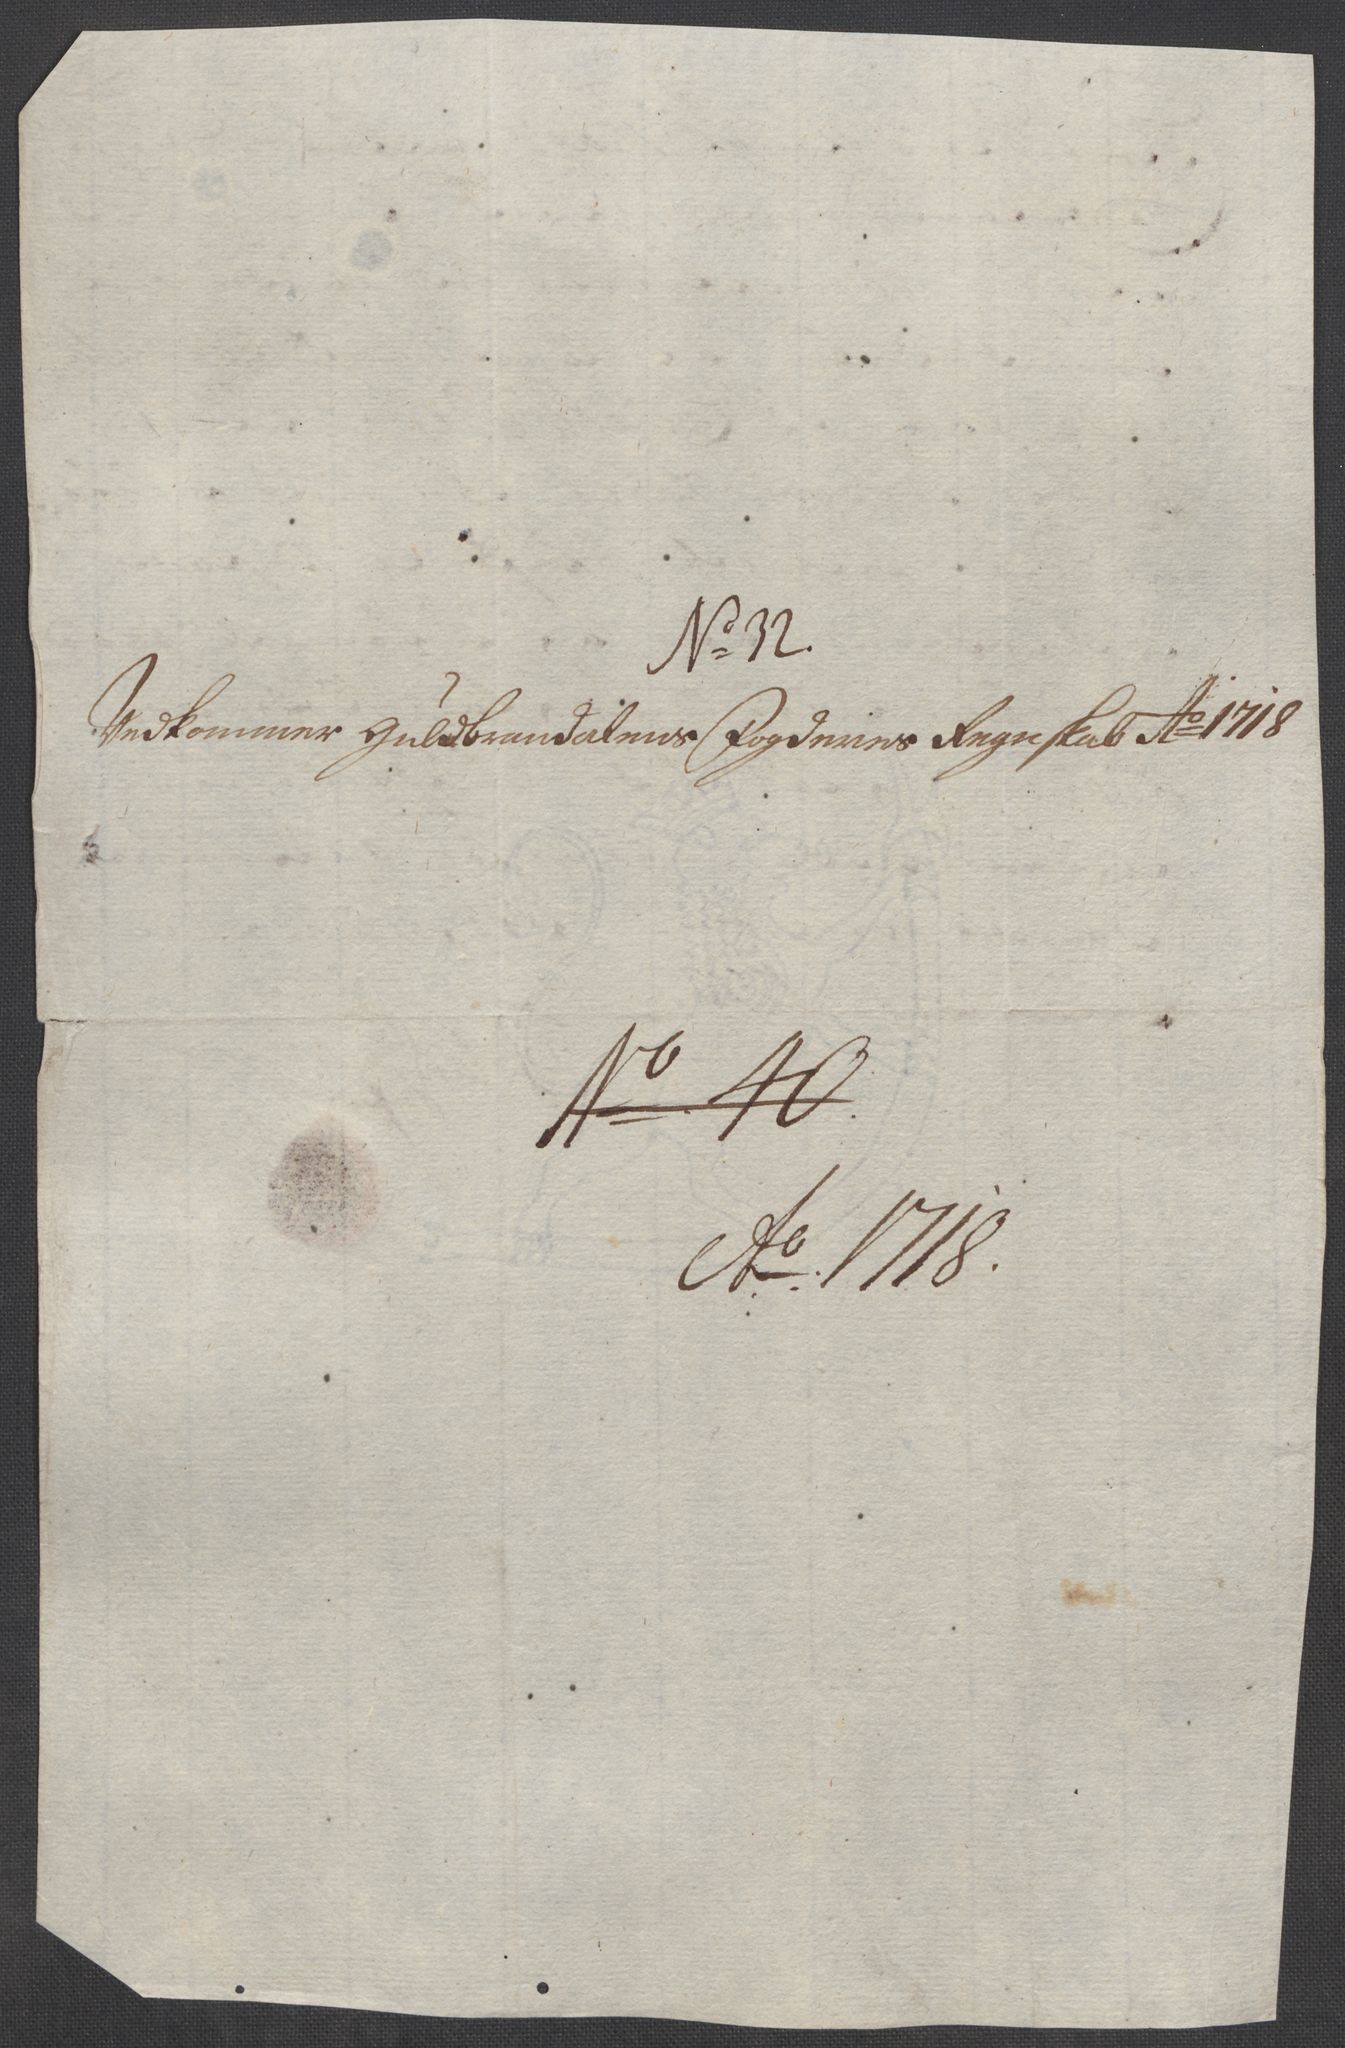 No 32.
Vedkommer Guldbrandalens Fogderies Regnskab Ao 1718
No 40.
Ao. 1718.